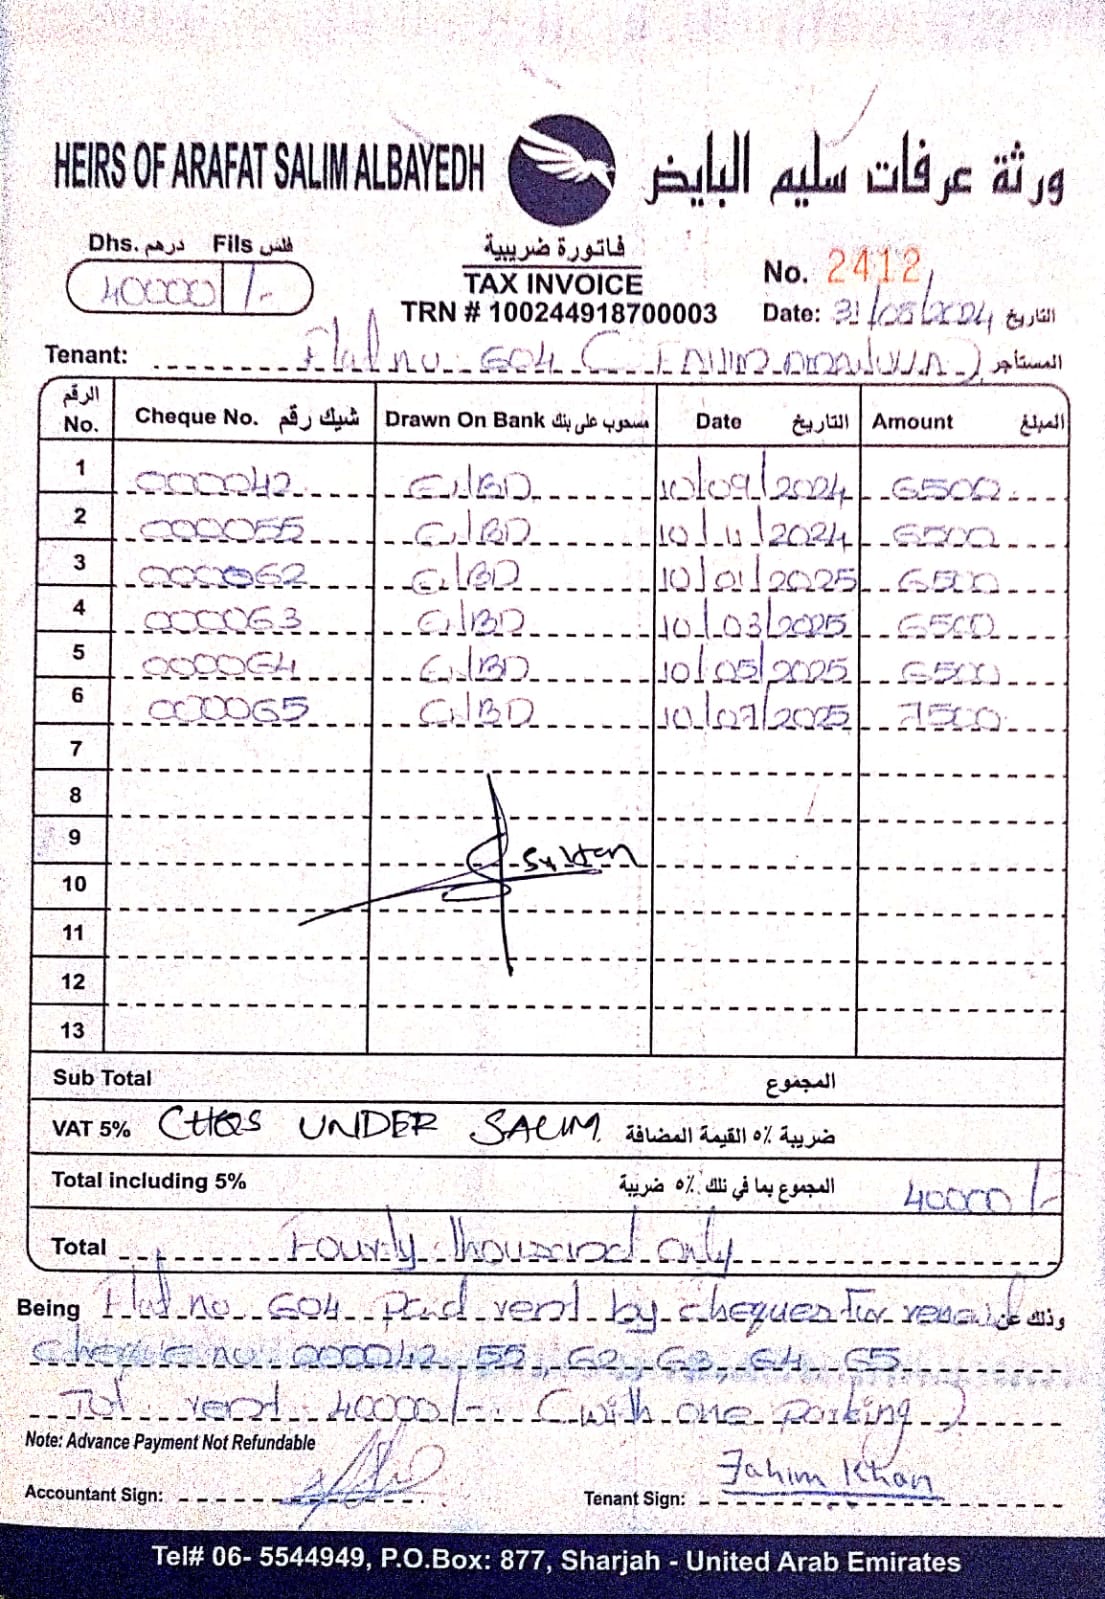 HEIRS OF ARAFAT SALIM ALBAYEDH ورثة عرفات سليم البايض
Dhs. درهم Fils فلس
40000 /-
فاتورة ضريبية
TAX INVOICE
TRN # 100244918700003
No. 2412
Date: 31/05/2024 التاريخ
Tenant: Flat no 604 المستأجر
الرقم No. Cheque No. شيك رقم Drawn On Bank مسحوب على بنك Date التاريخ Amount المبلغ
1 000042 EIBD 10/09/2024 6500
2 000055 EIBD 10/11/2024 6500
3 000062 EIBD 10/01/2025 6500
4 000063 EIBD 10/03/2025 6500
5 000064 EIBD 10/05/2025 6500
6 000065 EIBD 10/07/2025 7500
7
8
9 Sultan
10
11
12
13
Sub Total المجموع
VAT 5% CHQS UNDER SALIM ضريبة ٥٪ القيمة المضافة
Total including 5% المجموع بما في ذلك ٥٪ ضريبة 40000/-
Total Fourty thousand only
Being Flat no 604 paid rent by cheques for renewal وذلك عن
Cheque no 000042, 55, 62, 63, 64, 65
Tot rent 40000/- (with one parking)
Note: Advance Payment Not Refundable
Accountant Sign:
Tenant Sign: Fahim Khan
Tel# 06- 5544949, P.O.Box: 877, Sharjah - United Arab Emirates